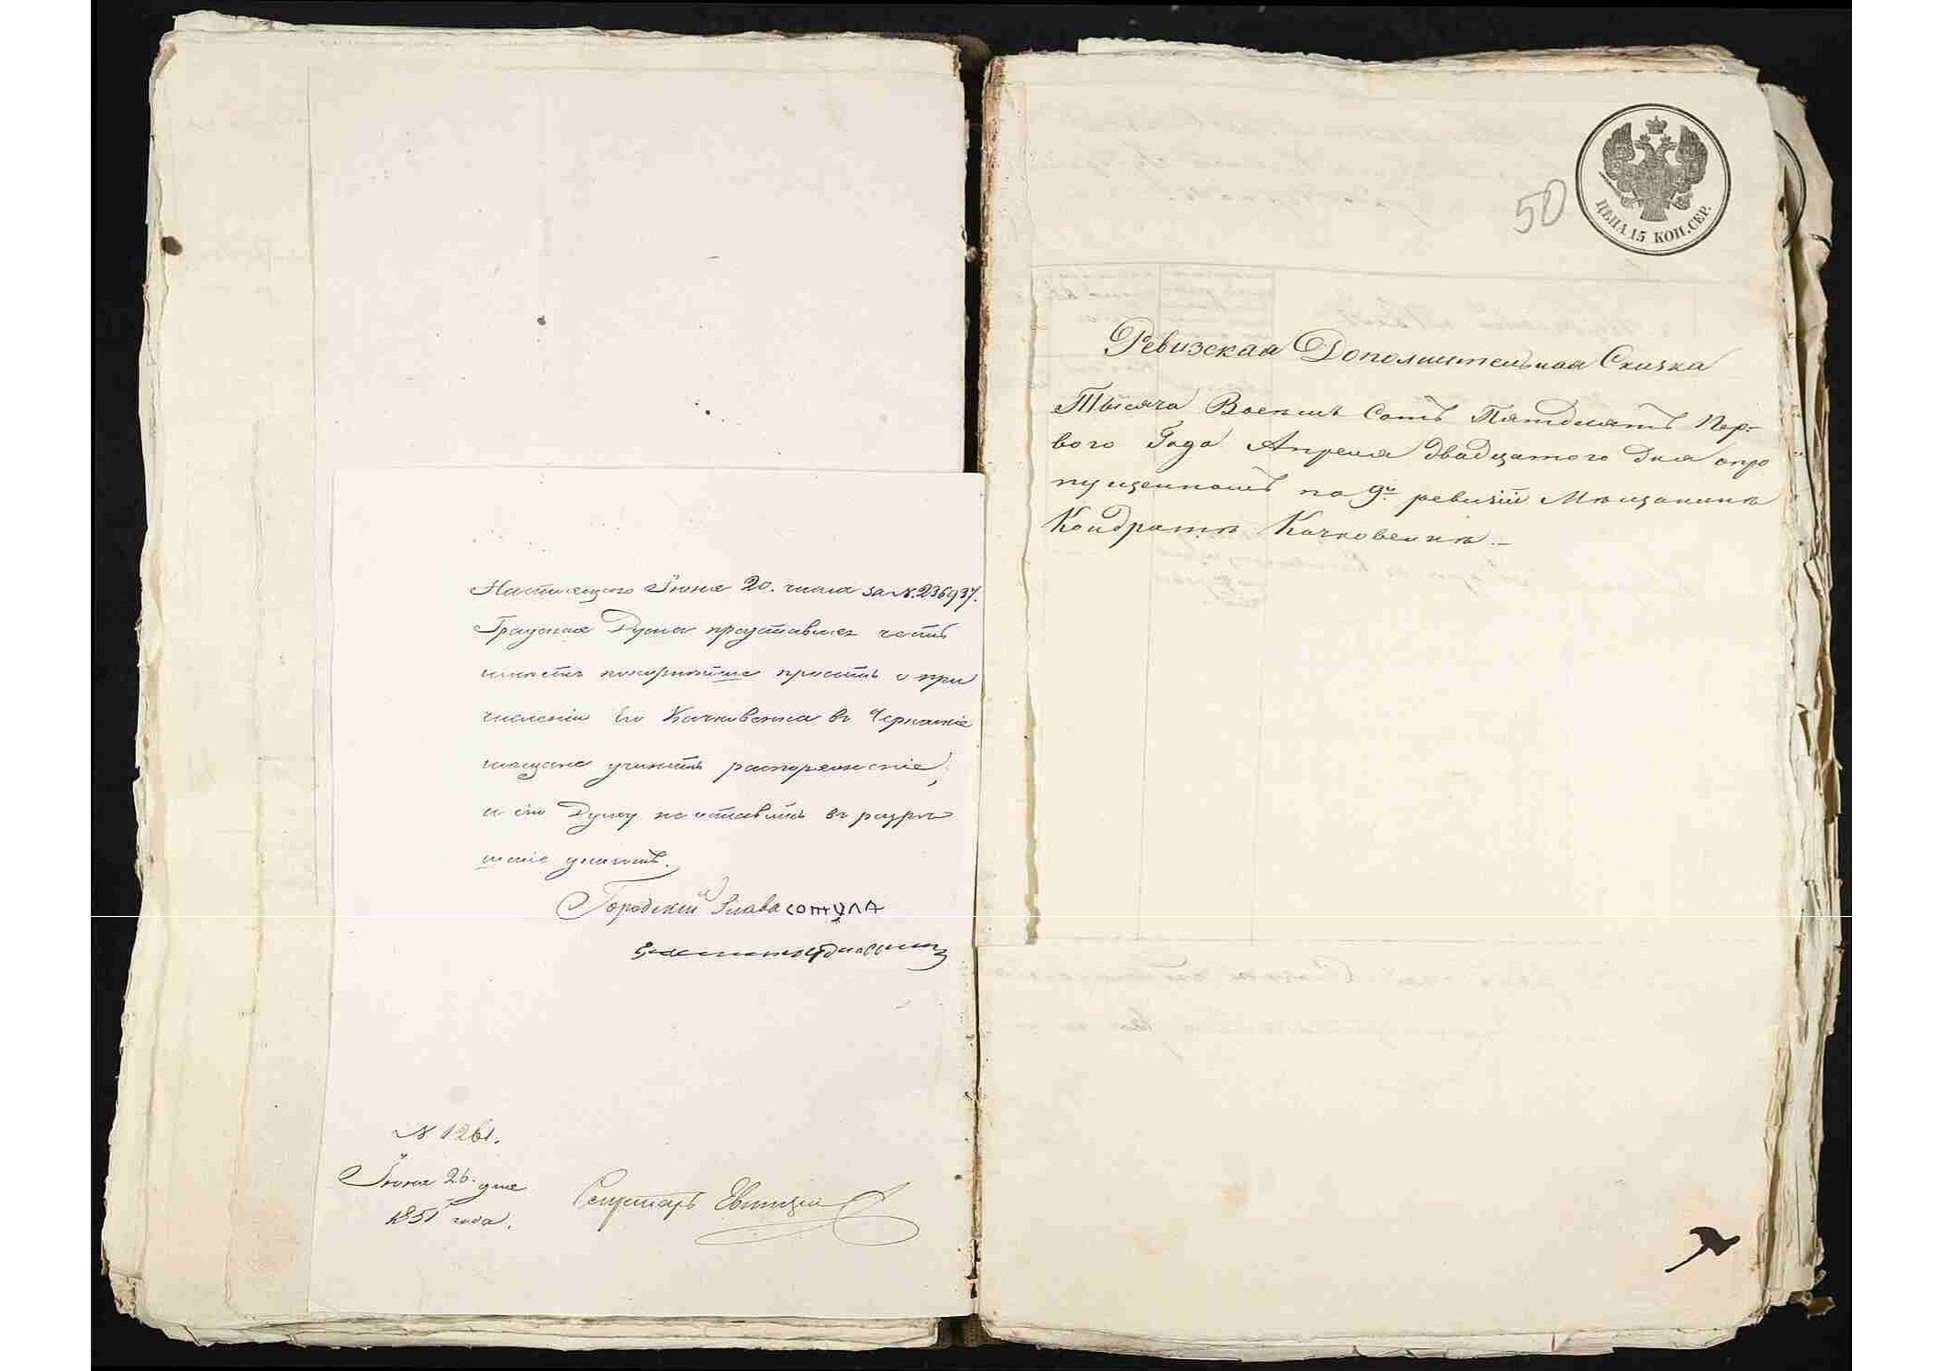 Настоящего Іюня 20. числа за №.236937.
Градская Дума представляя честь
имѣетъ покорнѣйше просить о при
численіи его Качковскаго въ
мѣщане учинить распоряженіе,
и сію Думу не оставить въ разрѣ
шеніе
Городскій Глава сотула
№ 1261.
Іюня 26. дня
1851 года.
Секретарь
50
ЦѢНА 15 КОП. СЕР.
Ревизская Дополнительная Сказка
Тысяча Восемь Сотъ Пятдесятъ Пер-
вого Года Апреля двадцатого дня опро
пущенномъ по 9й ревизіи Мѣщанинѣ
Кондратѣ